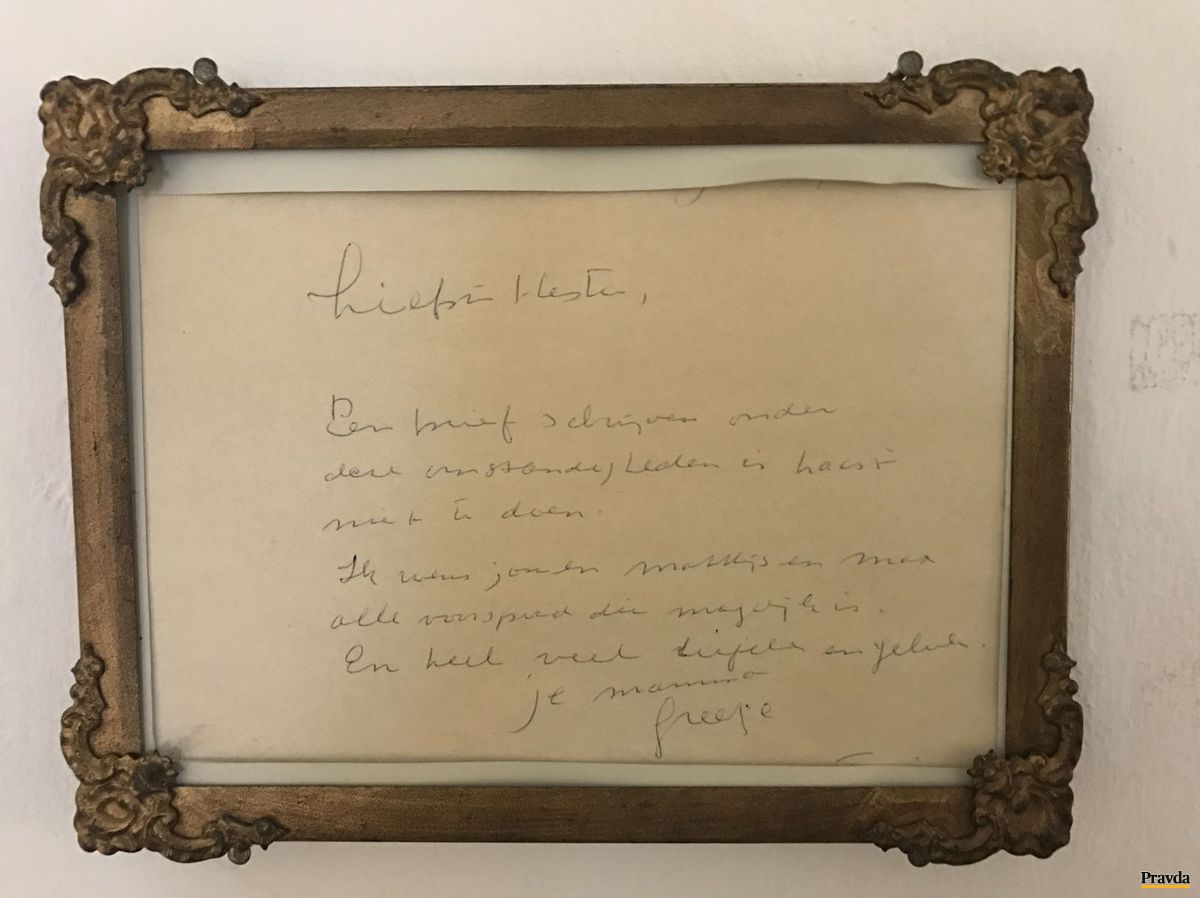 Liefste Hester,
Een brief schrijven onder
deze omstandigheden is haast
niet te doen.
Ik wens jou en Matthijs en Max
alle voorspoed die mogelijk is.
En heel veel liefde en geluk.
je mamma
Greetje
Pravda